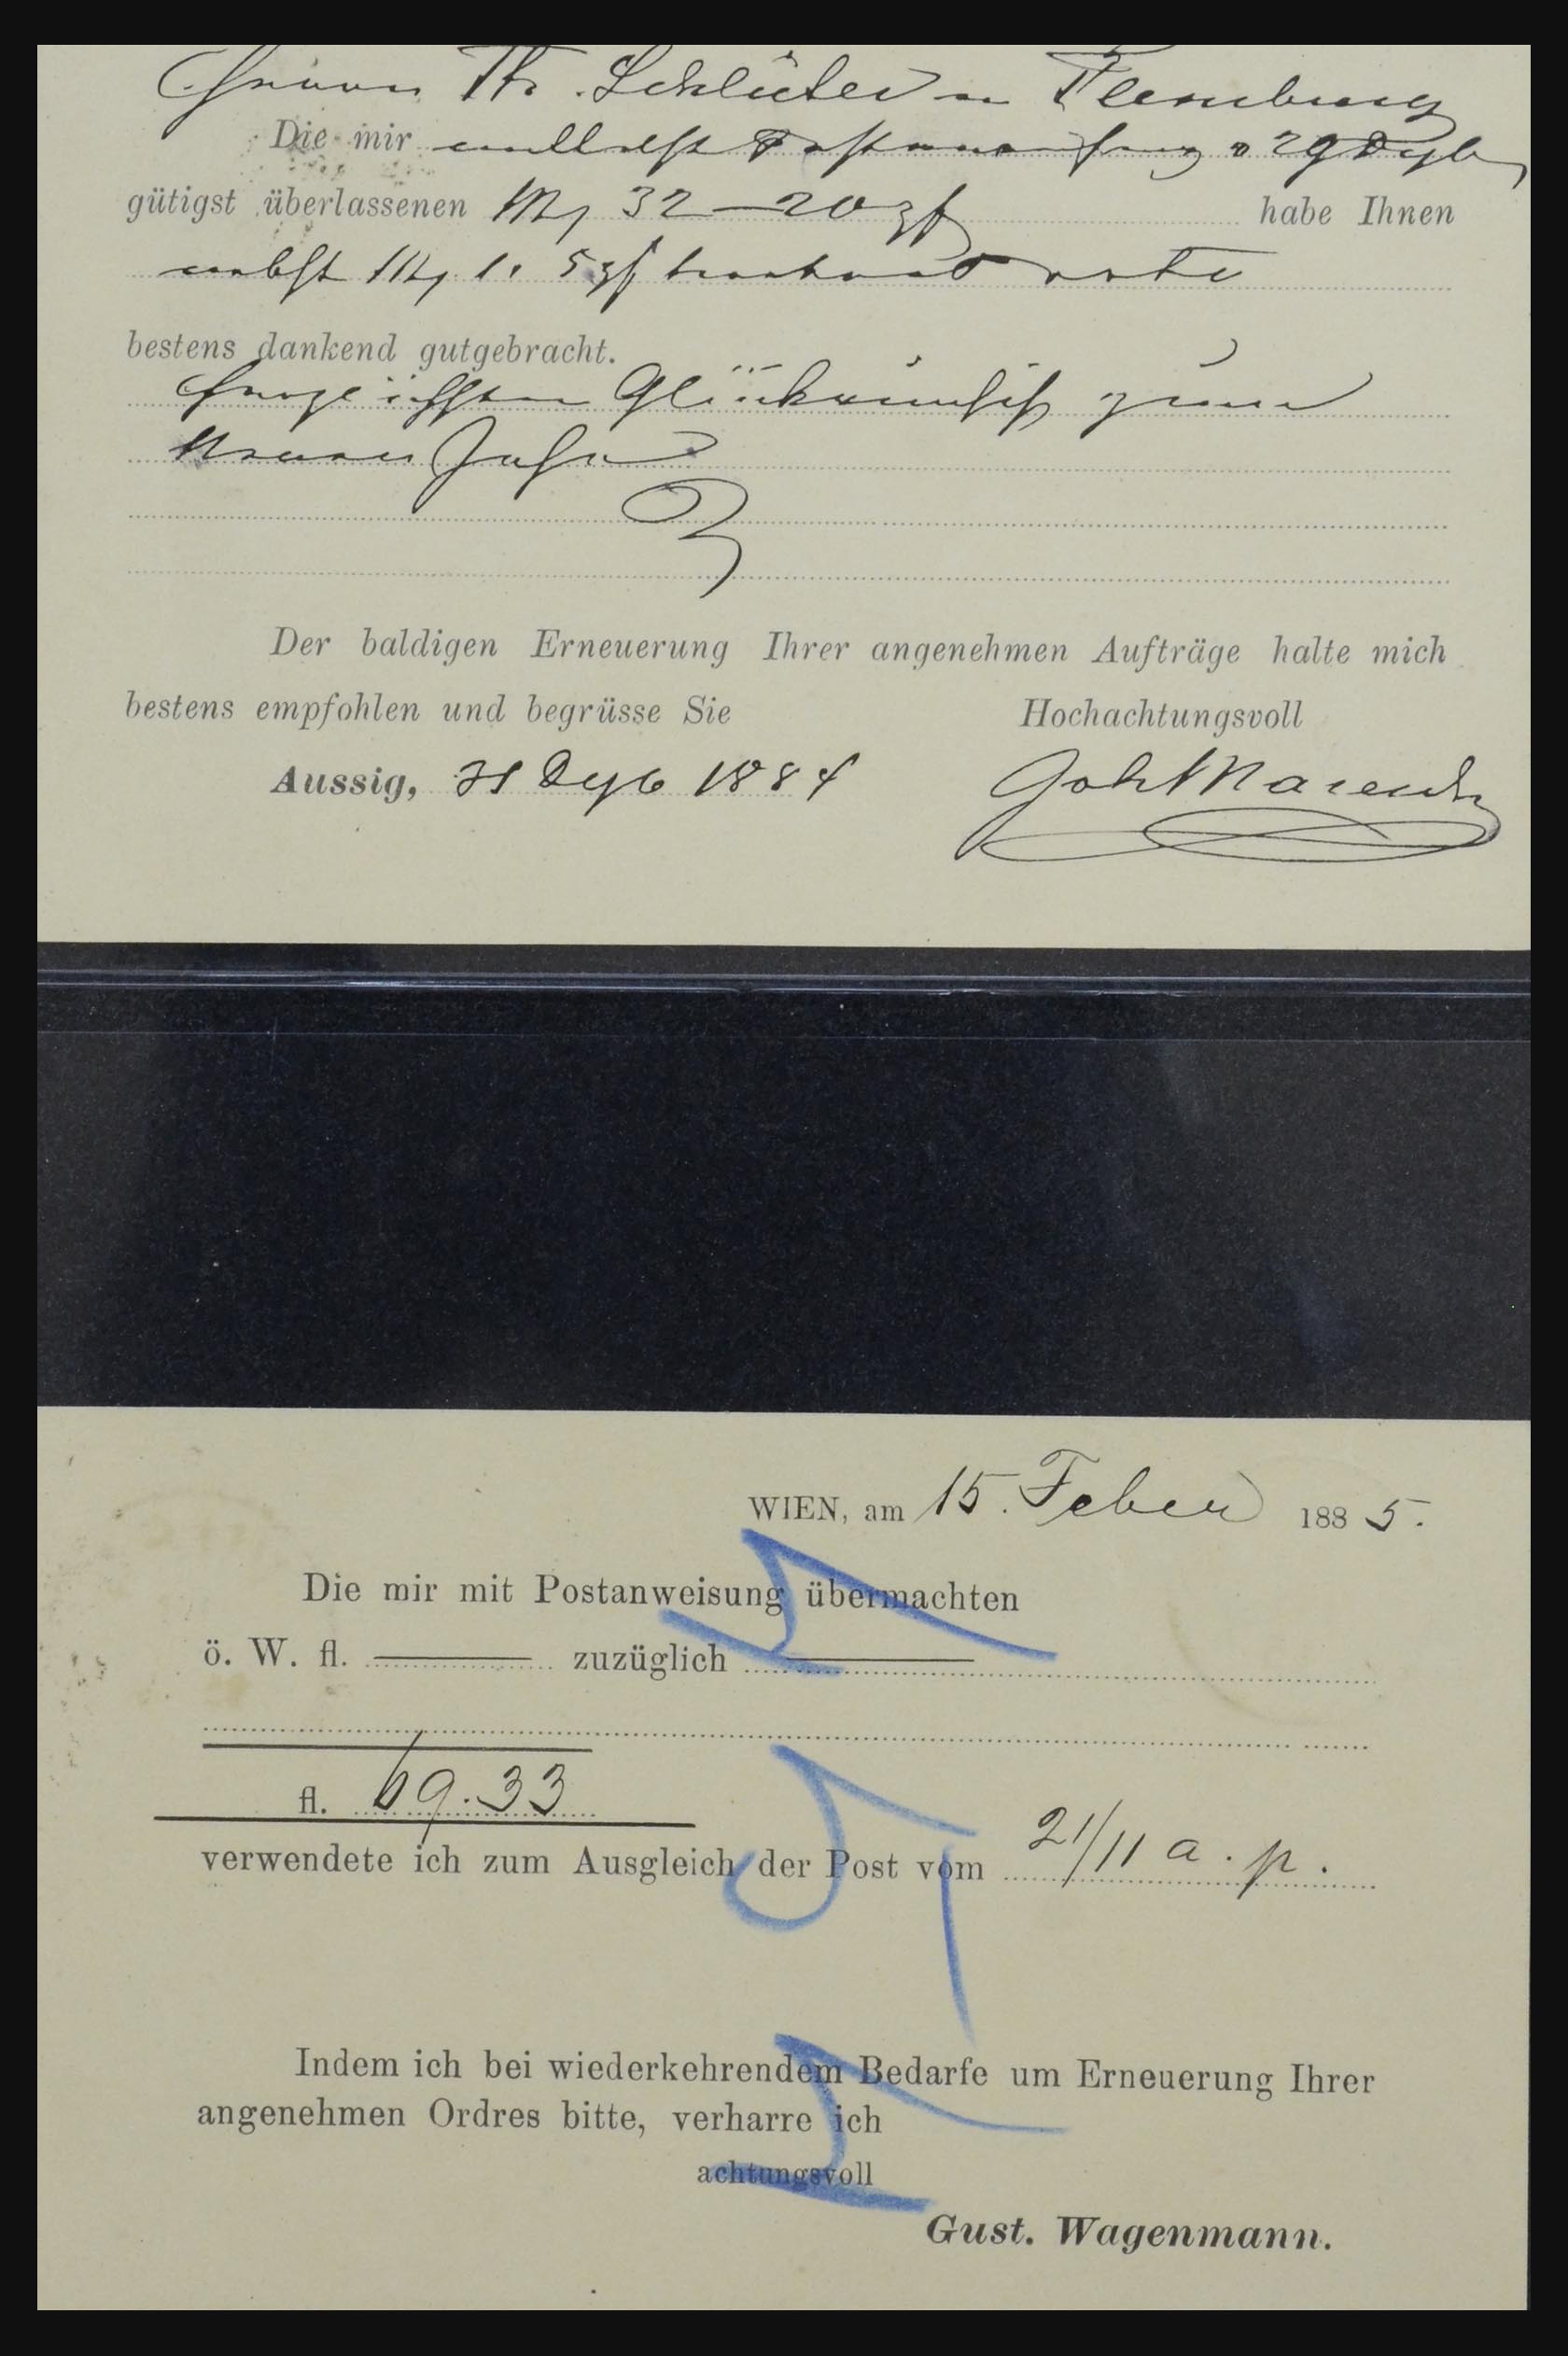 Herrn Th. Schlüter in Flensburg
Die mir mittelst Postanweisung v 29 Dezb
gütigst überlassenen Mk 32–20 habe Ihnen
nebst Mk 1. 5
bestens dankend gutgebracht.
Glückwunsch zum
Neuen Jahr
Der baldigen Erneuerung Ihrer angenehmen Aufträge halte mich
bestens empfohlen und begrüsse Sie Hochachtungsvoll
Aussig, 31 Dezb 1884
WIEN, am 15. Feber 1885.
Die mir mit Postanweisung übermachten
ö. W. fl. zuzüglich
fl. 69.33
verwendete ich zum Ausgleich der Post vom 21/11 a. p.
Indem ich bei wiederkehrendem Bedarfe um Erneuerung Ihrer
angenehmen Ordres bitte, verharre ich
achtungsvoll
Gust. Wagenmann.